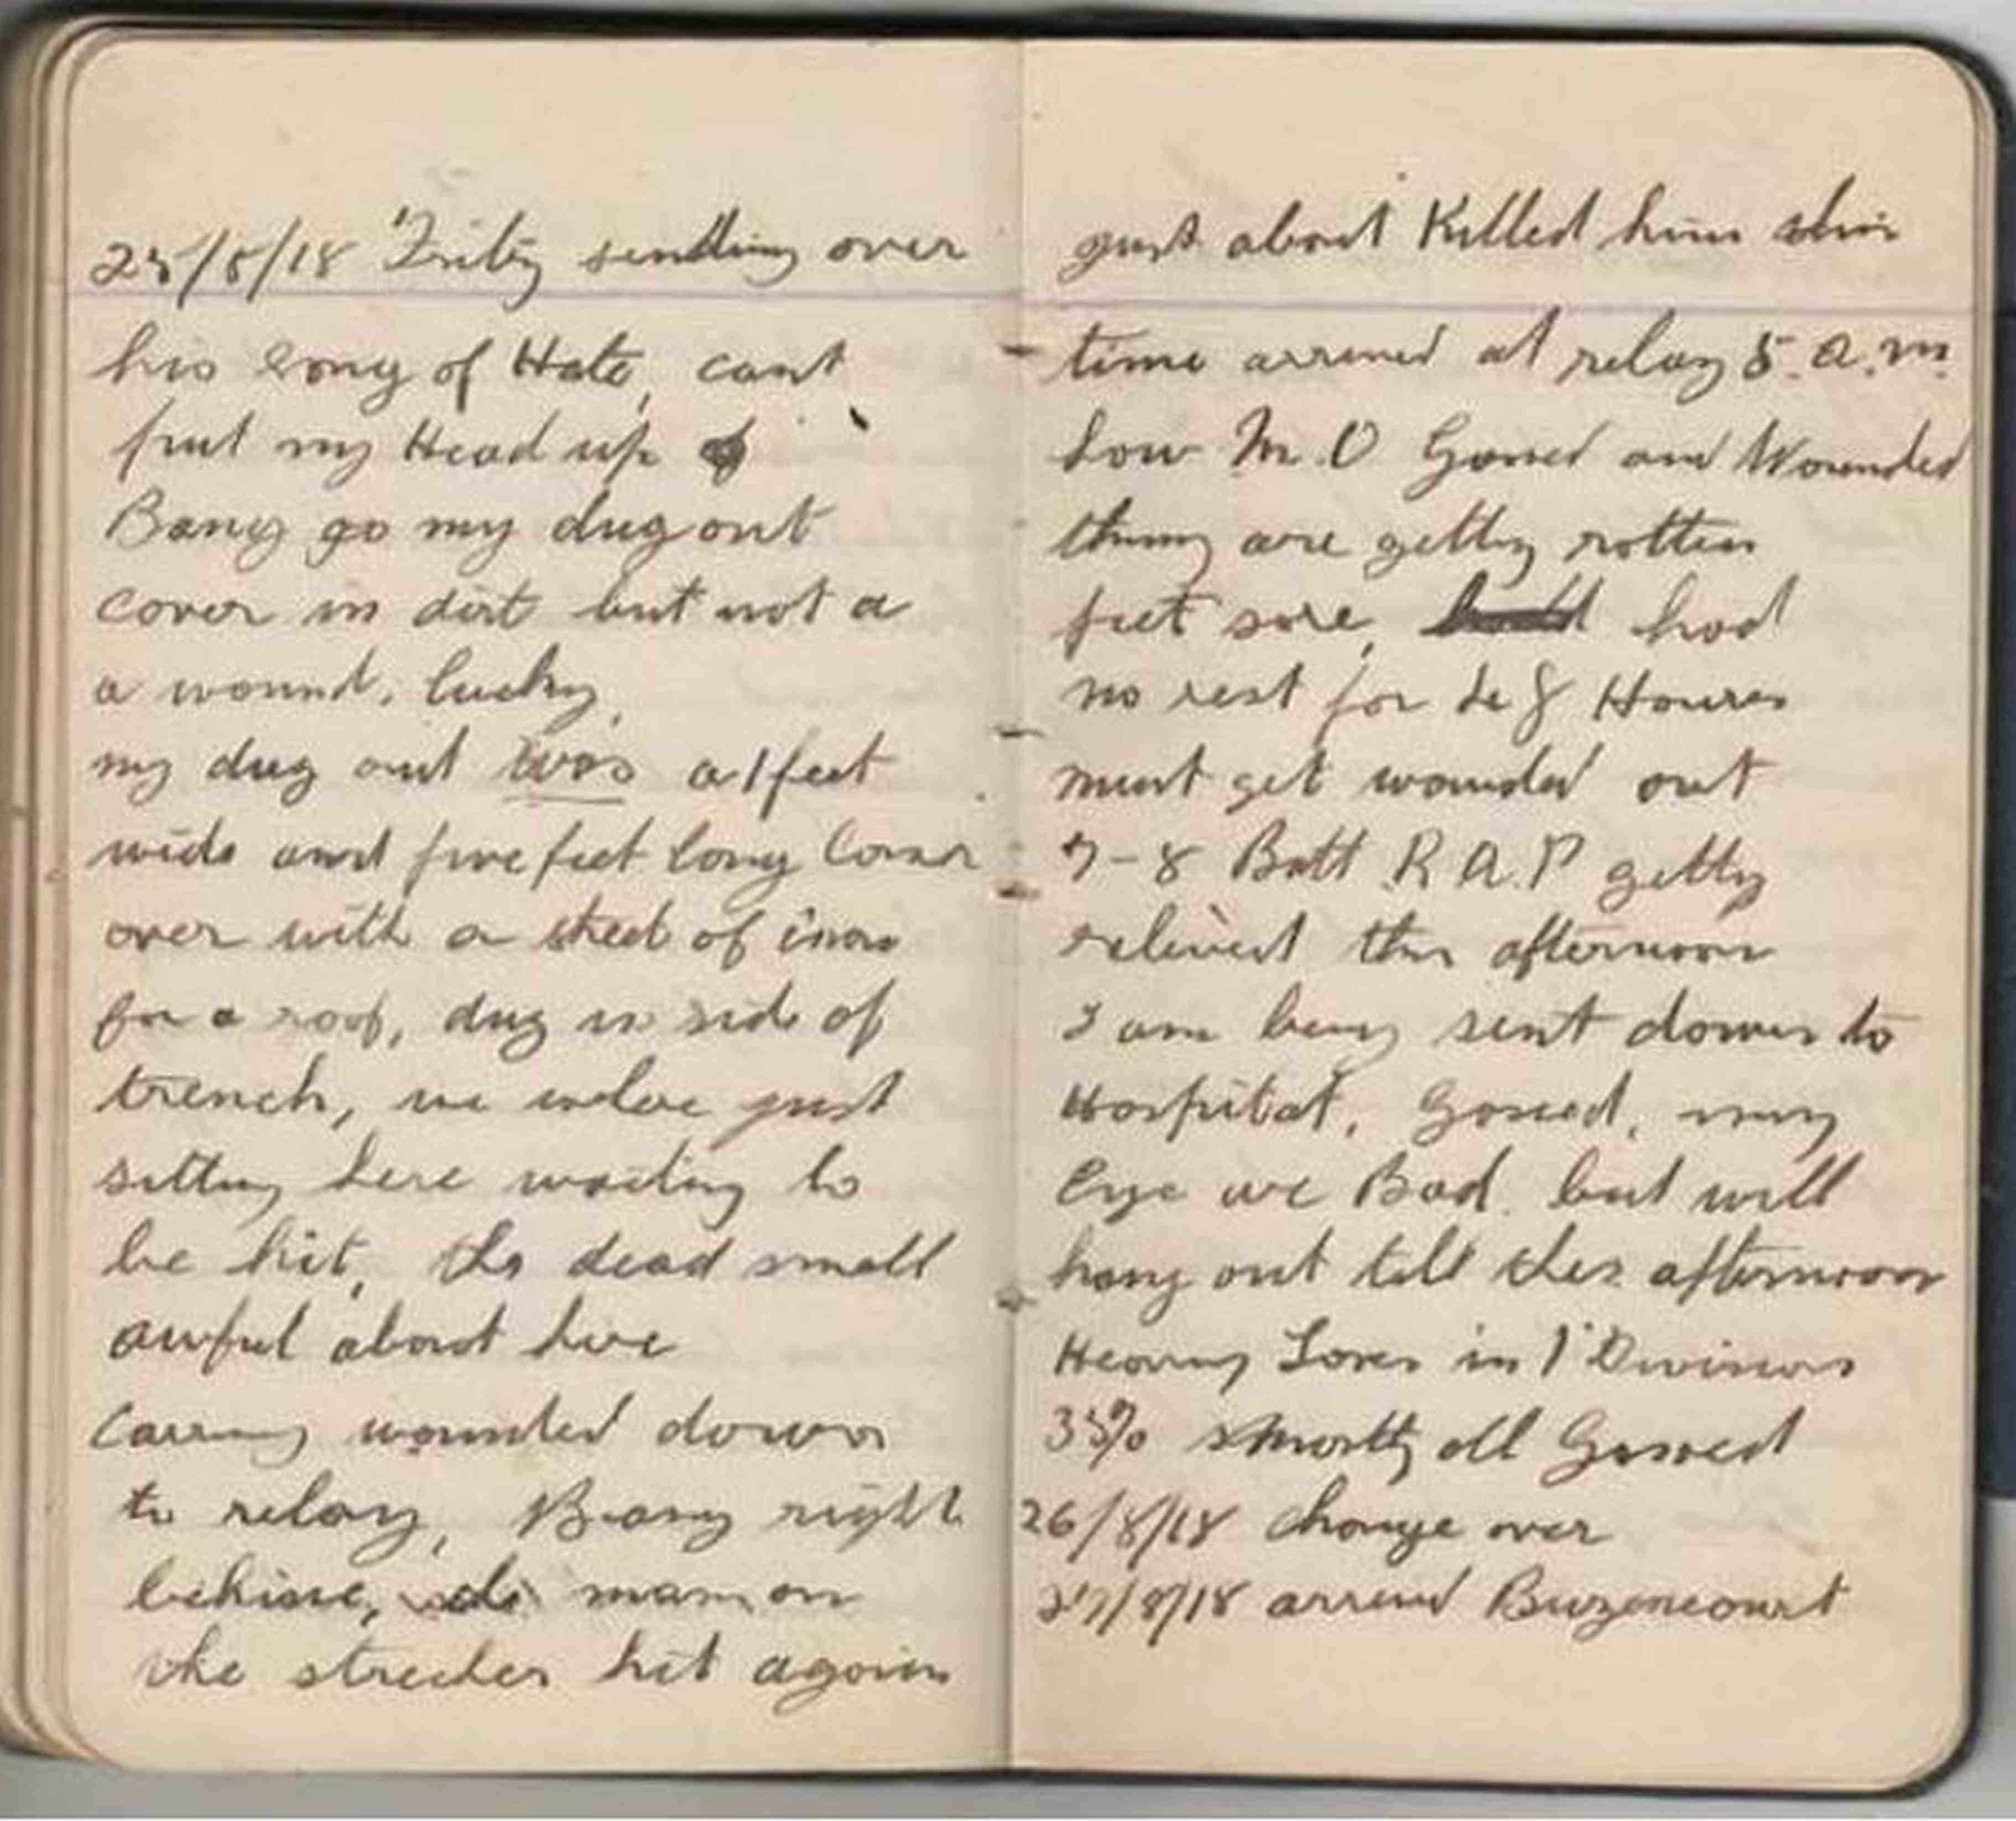 25/8/18 Fritz sending over
his song of Hate, cant
put my Head up
Bang go my dug out
cover in dirt but not a
a wound, lucky,
my dug out was a 1 feet
wide and five feet long Cover
over with a sheet of iron
for a roof, dug in side of
trench, we just
sitting here waiting to
be hit, the dead smell
awful about here
Carring wounded down
to relay, Bang right
behine, man on
the strecher hit again
just about Killed him this
time arrived at relay 5. a.m.
Low M.O Gassed and Wounded
thing are getting rotten
feet sore, had
no rest for Houres
must get wounded out
7-8 Batt R.A.P getting
relieved this afternoon
I am being sent down to
Hospital, Gassed, my
Eye are Bad. but will
hang out till this afternoon
Heavy Loses in 1 Division
35% mostly all Gassed
26/8/18 change over
27/8/18 arrived Buzencourt